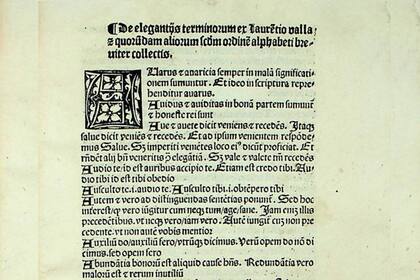 De elegantijs terminorum ex Laurētio valla
⁊ quorūdam aliorum scdm ordinē alphabeti bre-
uiter collectis.
AUarus & auaricia semper in malā significati-
onem sumuntur. Et ideo in scriptura repre-
henditur auarus.
Auidus & auiditas in bonā partem sumuūt
& honeste rei sunt
Aue & auete dicit veniens & recedēs. Itaqȝ
salue dicit veniēs & recedēs. Et ad ipsum venientem respōde-
mus Salue. Sȝ imperiti venētes loco ei9 dicūt proficiat. Et
rñdēt alij bñ veneritis p elegātia. Sȝ vale & valete rñ recedēs
Audio te id est auribus accipio te. Etiam est credo tibi. Au-
dio tibi id est tibi obedio
Ausculto te.i.audio te. Ausculto tibi.i.obtēpero tibi
Autem & vero ad distinguendas sentētias ponunt. Sed hoc
interest/qꝫ vero iūgitur cum neqȝ/tum/age/sane. Iam enī illis
precedētibus.vt neqȝ vero/iam vero. Autē iungit cū non pre-
cedente.vt non autē vobis mentior
Auxiliū do/auxiliū fero/vtrūqȝ dicimus. Verū opem do nō di-
cimus.sed opem fero
Abundātia bonorū est aliquid cause bñs. Redundātia vero
malorū est & rerum inutiliū